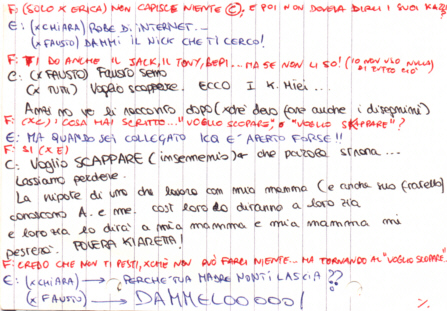 F: (SOLO X ERICA) NON CAPISCE NIENTE C, E POI NON DOVEVA DIRLI I SUOI
E: (XCHIARA) ROBE DI INTERNET...
(XFAUSTO) DAMMI IL NICK CHE TI CERCO!
F: TI DO ANCHE IL JACK, IL TONY, BEPI... MA SE NON LI SO! (IO NON VEDO NULLA DI TUTTO CIÒ)
C: (X FAUSTO) Fausto scemo
(X TUTTI) Voglio scappare. ECCO I K. Miei...
Anzi no ve li racconto dopo (xchè devo fare anche i disegnini)
F: (XC) COSA HAI SCRITTO..."VOGLIO SCOPARE" O "VOGLIO SKAPPARE"?
E: MA QUANDO SEI COLLEGATO ICQ E' APERTO FORSE!!
F: SI (X E)
C: Voglio SCAPPARE (insennemio) che pazzoza strana...
Lasciamo perdere.
La nipote di uno che lavora con mia mamma (e anche suo fratello)
conoscono A. e me. così loro lo diranno a loro zia
e loro zia lo dirà a mia mamma e mia mamma mi
pesterà. POVERA KIARETTA!
F: CREDO CHE NON TI PESTI, XCHÈ NON PUÒ FARTI NIENTE... MA TORNANDO AL "VOGLIO SCOPARE"..
E: (XCHIARA) → PERCHÈ TUA MADRE NON TI LASCIA??
(X FAUSTO) → DAMMELOOOOO!
%